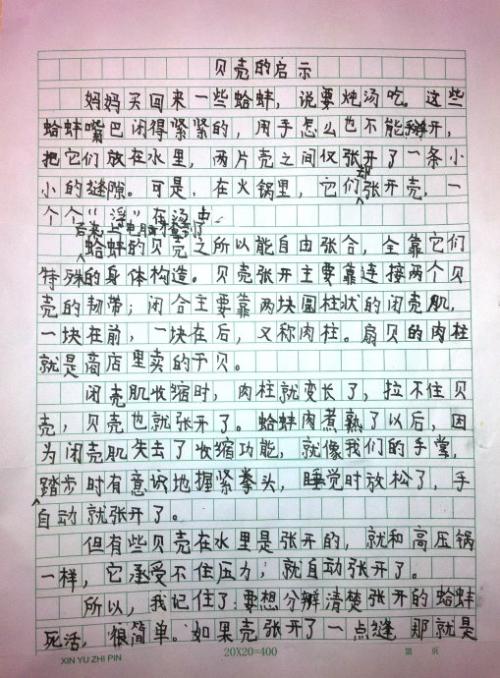 贝壳的启示
妈妈买回来一些蛤蚌，说要炖汤吃。这些
蛤蚌嘴巴闭得紧紧的，用手怎么也不能掰开，
把它们放在水里，两片壳之间仅张开了一条小
小的缝隙。可是，在火锅里，它们却张开壳，一
个个“浮”在汤中。
后来上电脑才查到了
蛤蚌的贝壳之所以能自由张合，全靠它们
特殊的身体构造。贝壳张开主要靠连接两个贝
壳的韧带；闭合主要靠两块圆柱状的闭壳肌，
一块在前，一块在后，又称肉柱。扇贝的肉柱
就是商店里卖的干贝。
闭壳肌收缩时，肉柱就变长了，拉不住贝
壳，贝壳也就张开了。蛤蚌肉煮熟了以后，因
为闭壳肌失去了收缩功能，就像我们的手掌，
踏步时有意识地握紧拳头，睡觉时放松了，手
自动就张开了。
但有些贝壳在水里是张开的，就和高压锅
一样，它承受不住压力，就自动张开了。
所以，我记住了：要想分辨清楚张开的蛤蚌
死活，很简单。如果壳张开了一点缝 那就是
XIN YU ZHI PIN 20X20=400 第 页